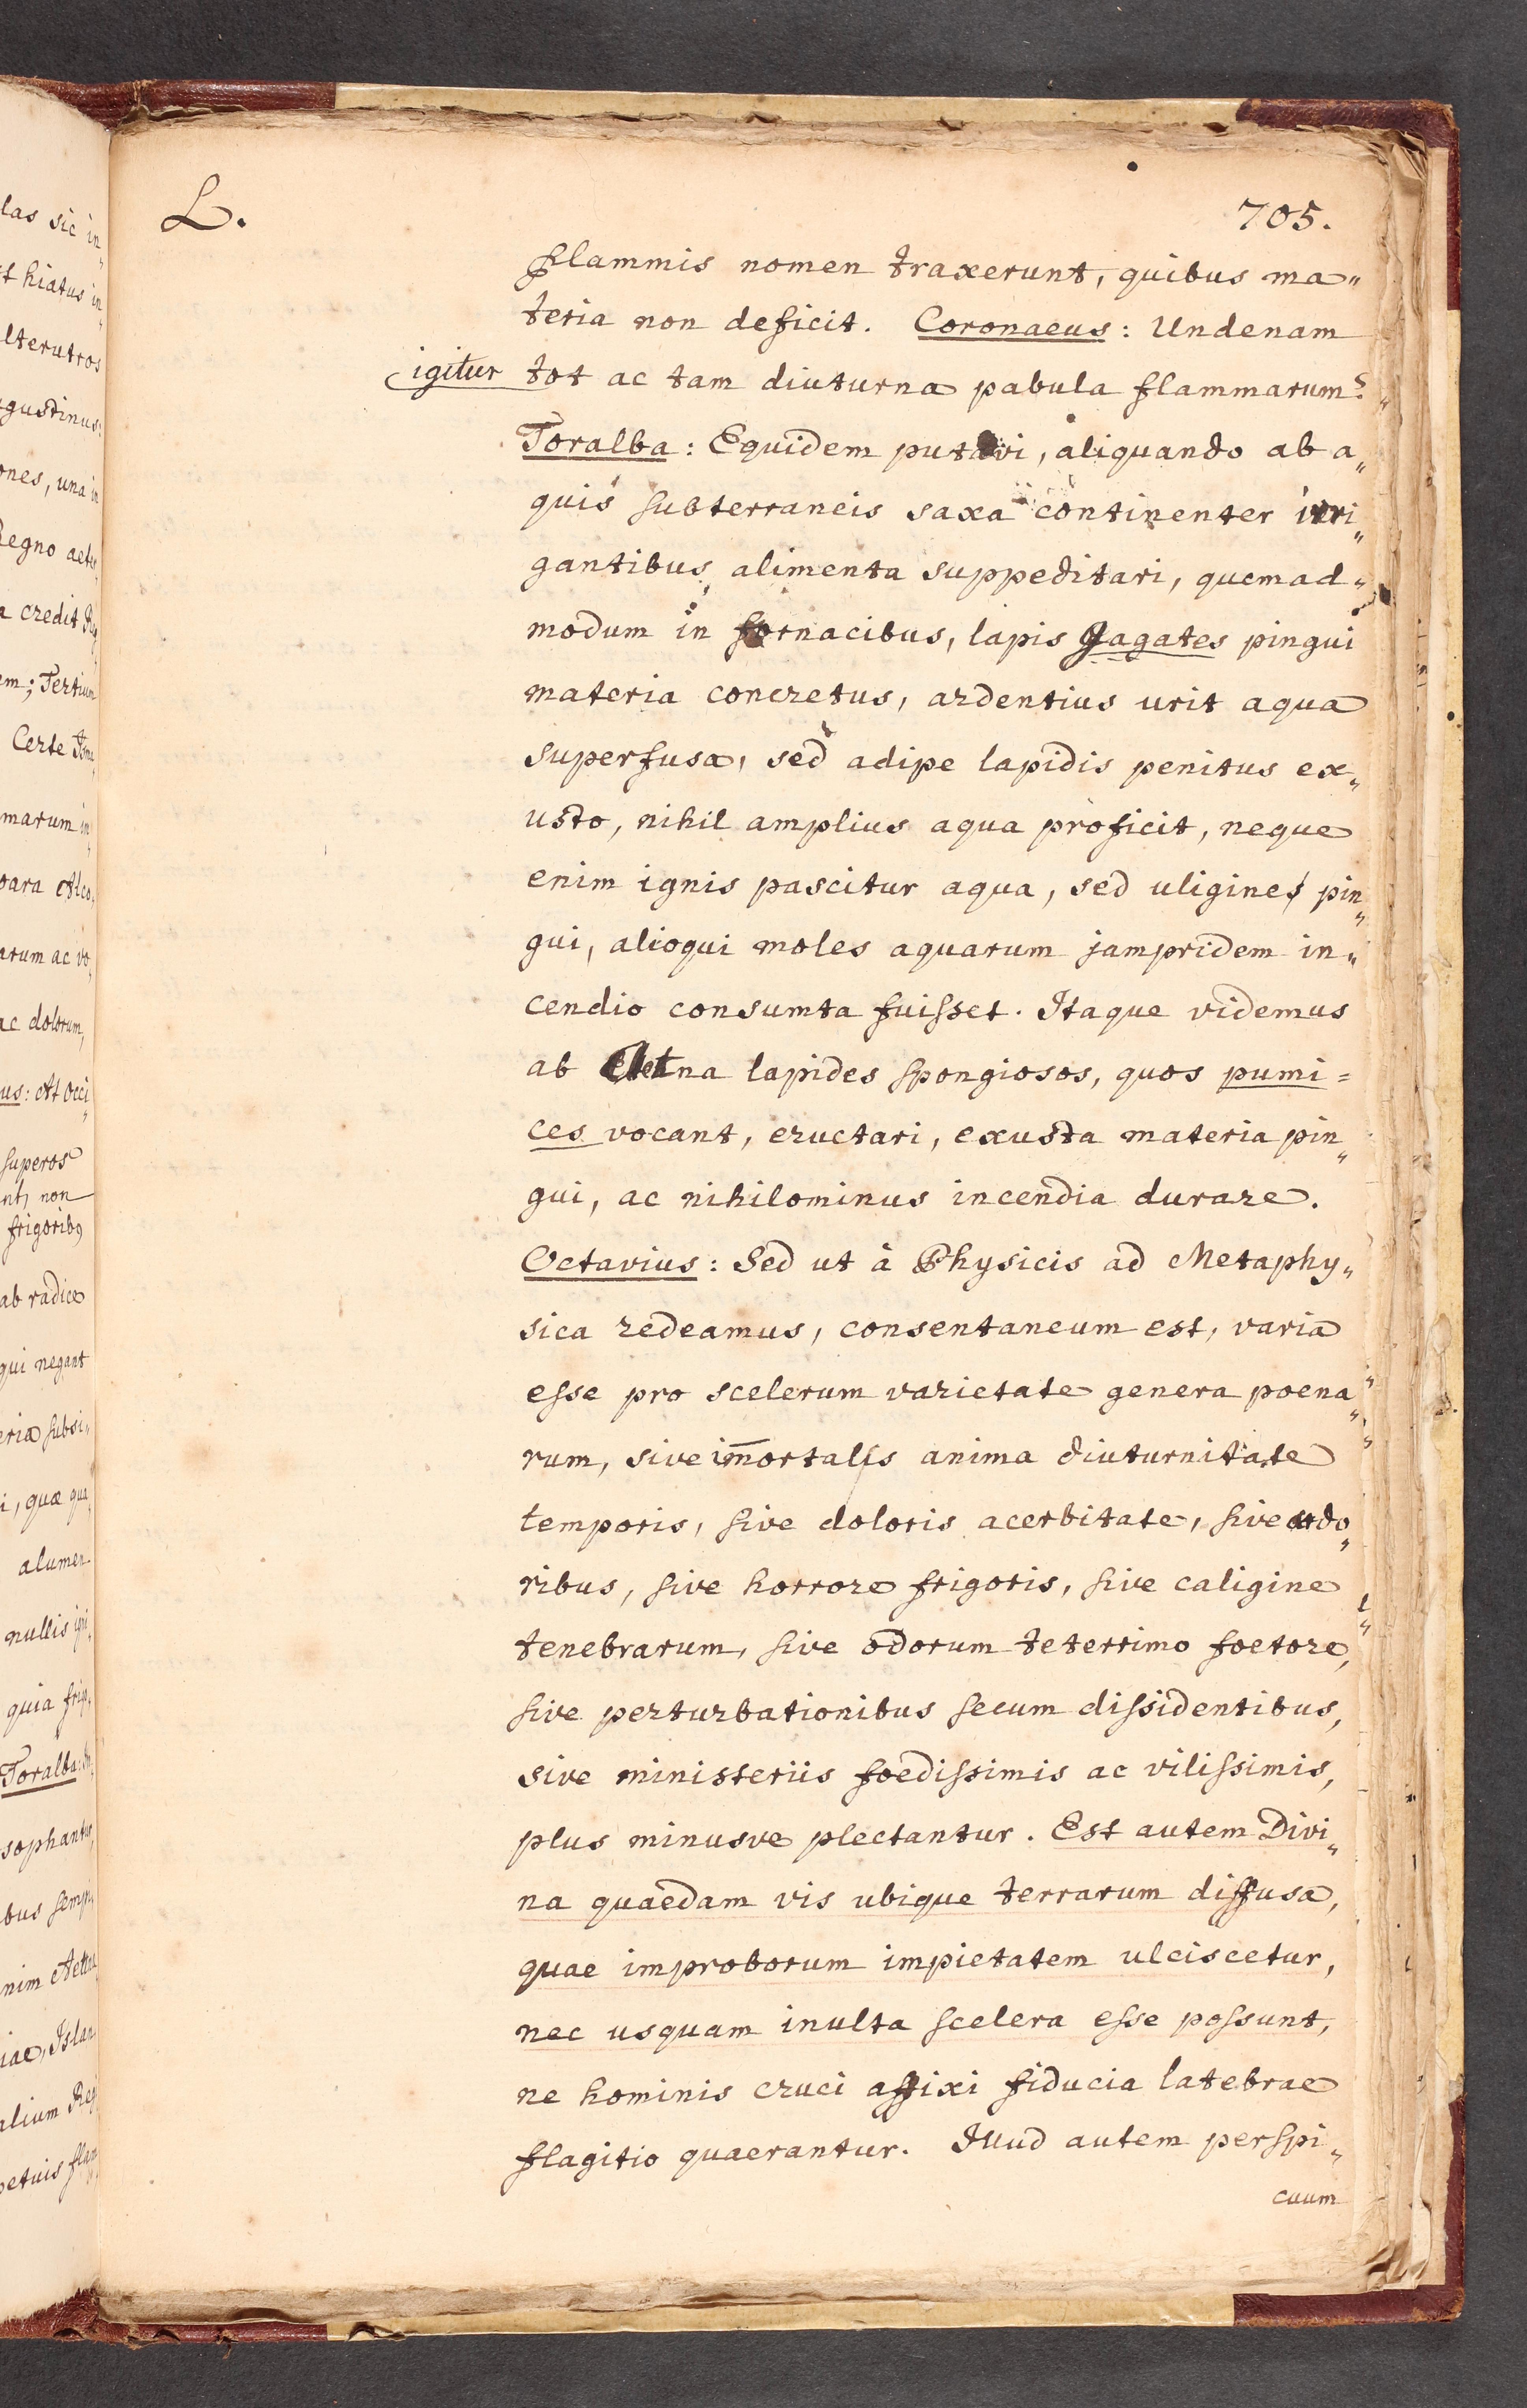 L.
705.
flammis nomen traxerunt, quibus ma„
teria non deficit. Coronaeus: Undenam
igitur tot ac tam diuturna pabula flammarum?
Toralba: Equidem putavi, aliquando ab a„
quis subterraneis saxa continenter irri„
gantibus alimenta suppeditari, quemad„
modum in fornacibus, lapis gagates pingui
materia concretus, ardentius urit aqua
superfusa, sed adipe lapidis penitus ex„
usto, nihil amplius aqua proficit, neque
enim ignis pascitur aqua, sed uligine pin„
gui, alioqui moles aquarum jampridem in„
cendio consumta fuisset. Itaque videmus
ab Aetna lapides spongiosos, quos pumi=
ces vocant, eructari, exusta materia pin„
gui, ac nihilominus incendia durare.
Octavius: Sed ut à Physicis ad Metaphy„
sica redeamus, consentaneum est, varia
esse pro scelerum varietate genera poena„
rum, sive im̄ortalis anima diuturnitate
temporis, sive doloris acerbitate, sive ardo„
ribus, sive horrore frigoris, sive caligine
tenebrarum, sive odorum teterrimo foetore,
sive perturbationibus secum dissidentibus,
sive ministeriis foedissimis ac vilissimis,
plus minusve plectantur. Est autem Divi„
na quaedam vis ubique terrarum diffusa,
quae improborum impietatem ulciscetur,
nec usquam inulta scelera esse possunt,
ne hominis cruci affixi fiducia latebrae
flagitio quaerantur. Illud autem perspi„
cuum
las sic in„
hiatus in„
lterutros
gustinus:
ones, una in
Regno
credit
em; Tertium
Certe
marum in„
arum ac vo„
ac dolorum,
us: At Occi„
superos
non
frigoribus
ab radice
qui negant
eria subsi„
i, quae qua„
alumen
nullis igi„
quia
Toralba:
sophantur,
bus
nim
iae, Islan„
alium
petuis flam„